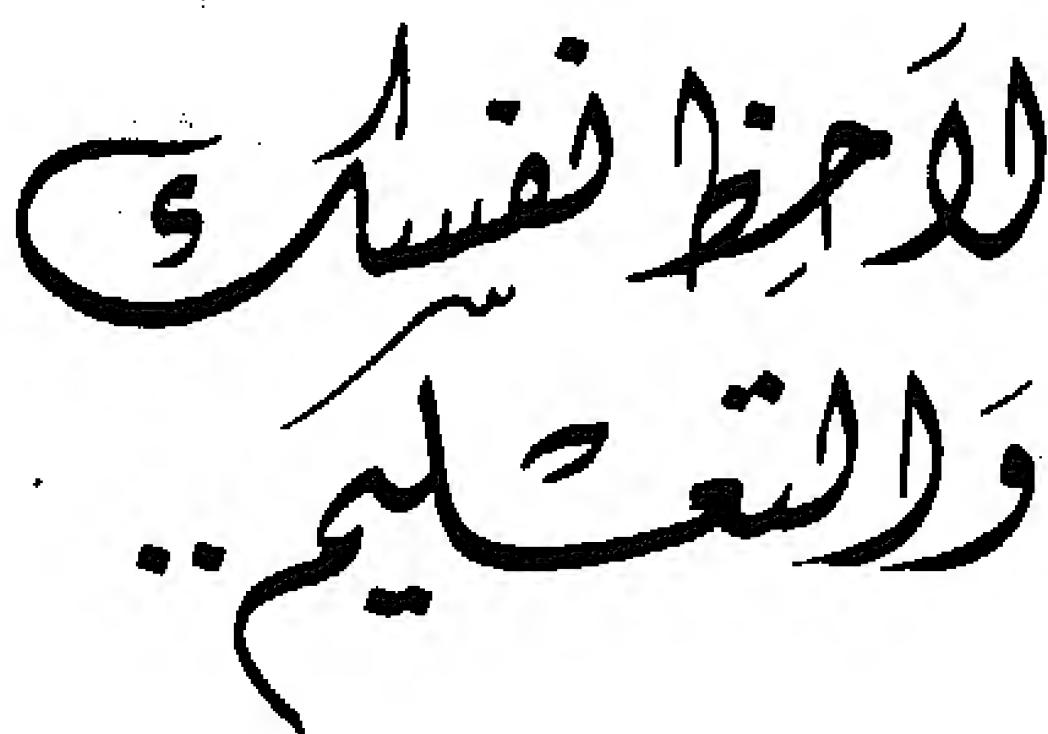 لاَحِظ نفسك
وَالتعليم ..